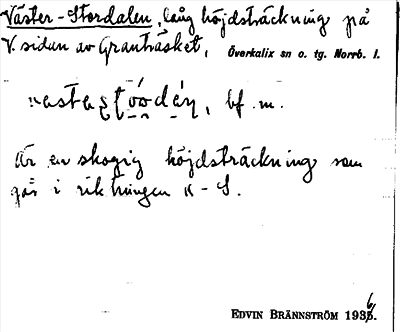 Väster-Stordalen, lång höjdsträckning på
V. sidan av Granträsket, Överkalix sn o. tg. Norrb. l.
bf. m.
är en skogig höjdsträckning som
går i riktningen N-S.
EDVIN BRÄNNSTRÖM 1936.